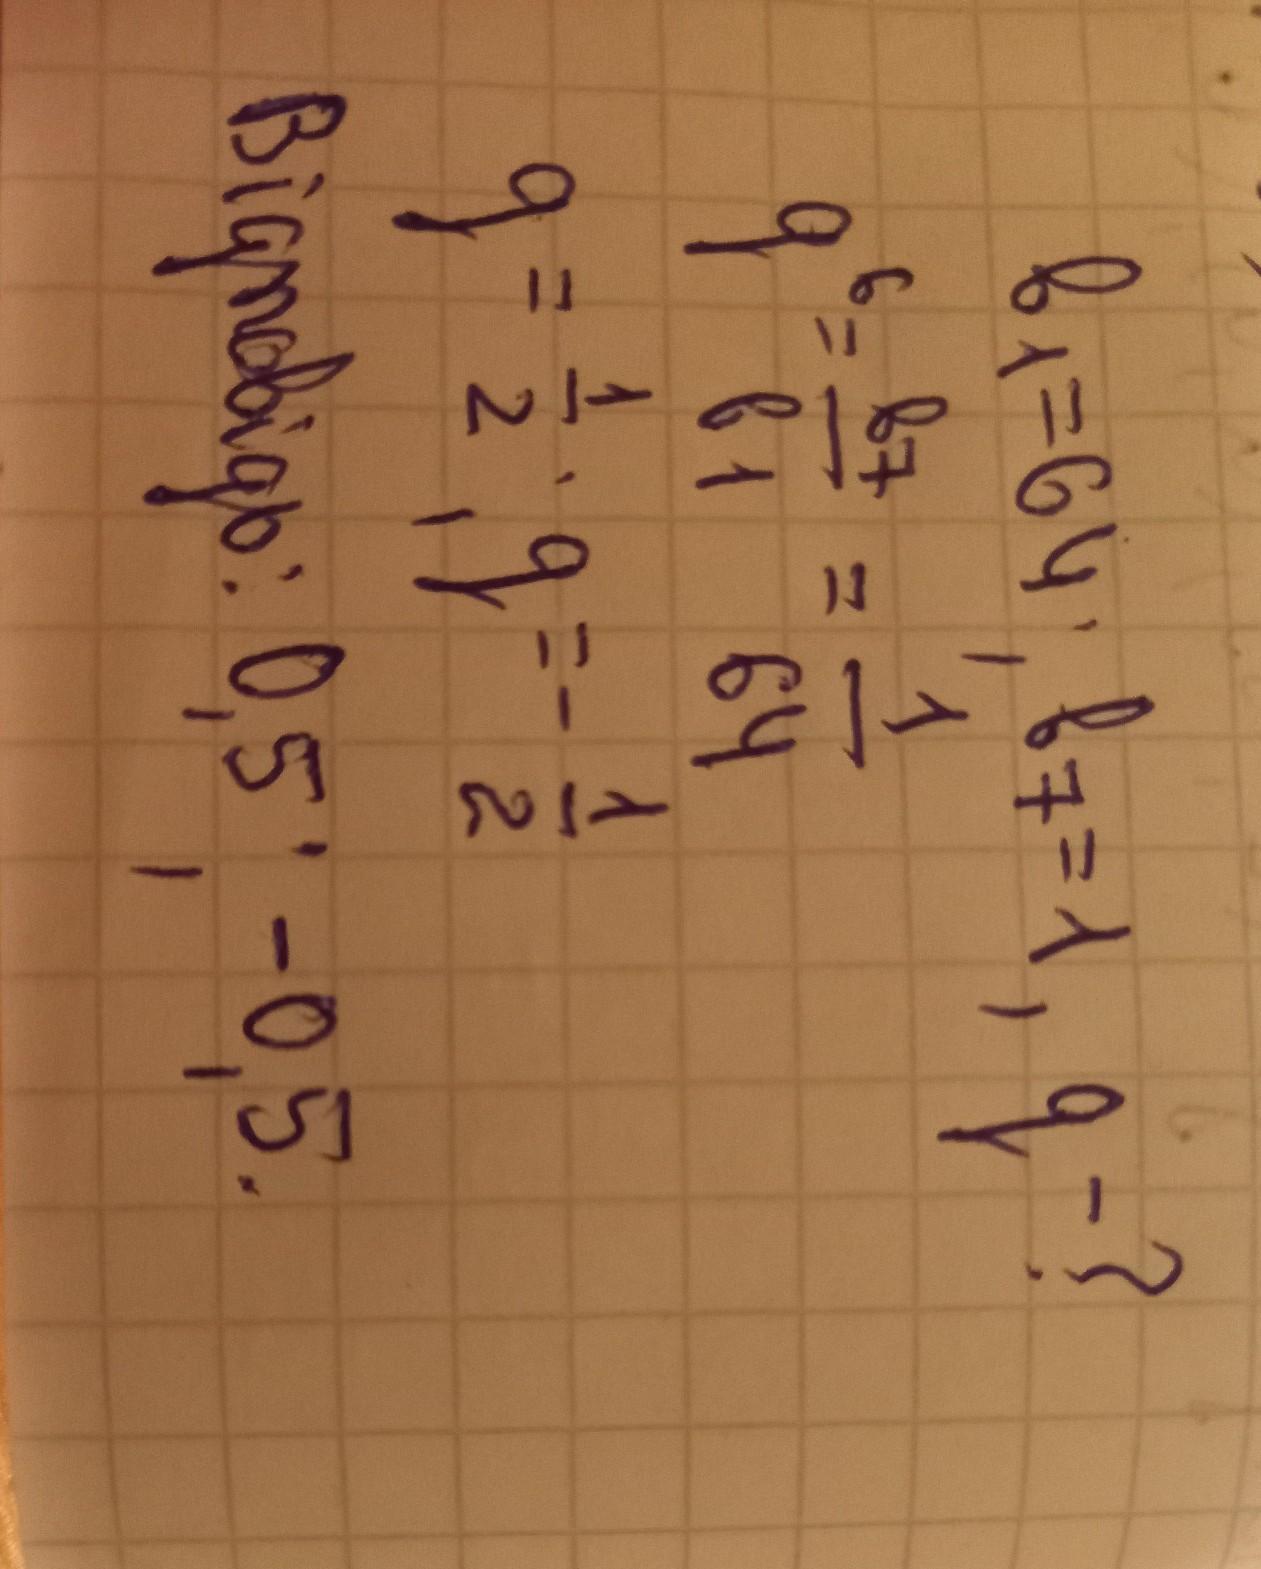 b₁=64; b₇=1, q-?
q⁶=b₇/b₁=1/64
q=1/2; q=-1/2
Відповідь: 0,5; -0,5.